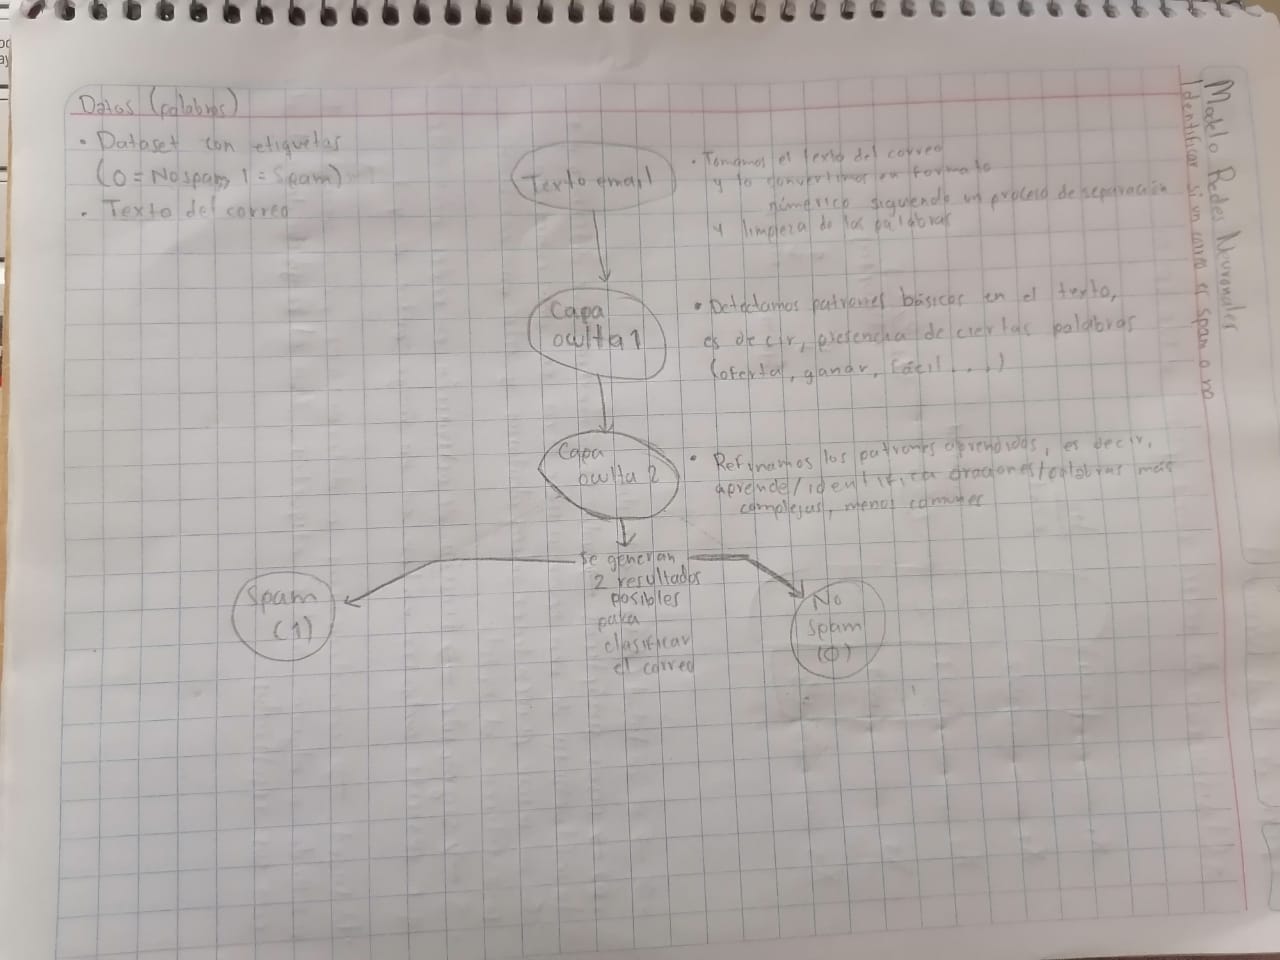 Modelo Redes Neuronales
Identificar si un correo es spam o no
Datos (palabras)
• Dataset con etiquetas
(0 = No spam, 1 = Spam)
• Texto del correo
Texto email
• Tomamos el texto del correo
y lo convertimos en formato
númerico siguiendo un proceso de separación
y limpieza de las palabras
Capa
oculta 1
• Detectamos patrones básicos en el texto,
es decir, presencia de ciertas palabras
(oferta, ganar, fácil...)
Capa
oculta 2
• Refinamos los patrones aprendidos, es decir,
aprende/identifica oraciones/palabras más
complejas, menos comunes
Se generan
2 resultados
posibles
para
clasificar
el correo
Spam
(1)
No
spam
(0)